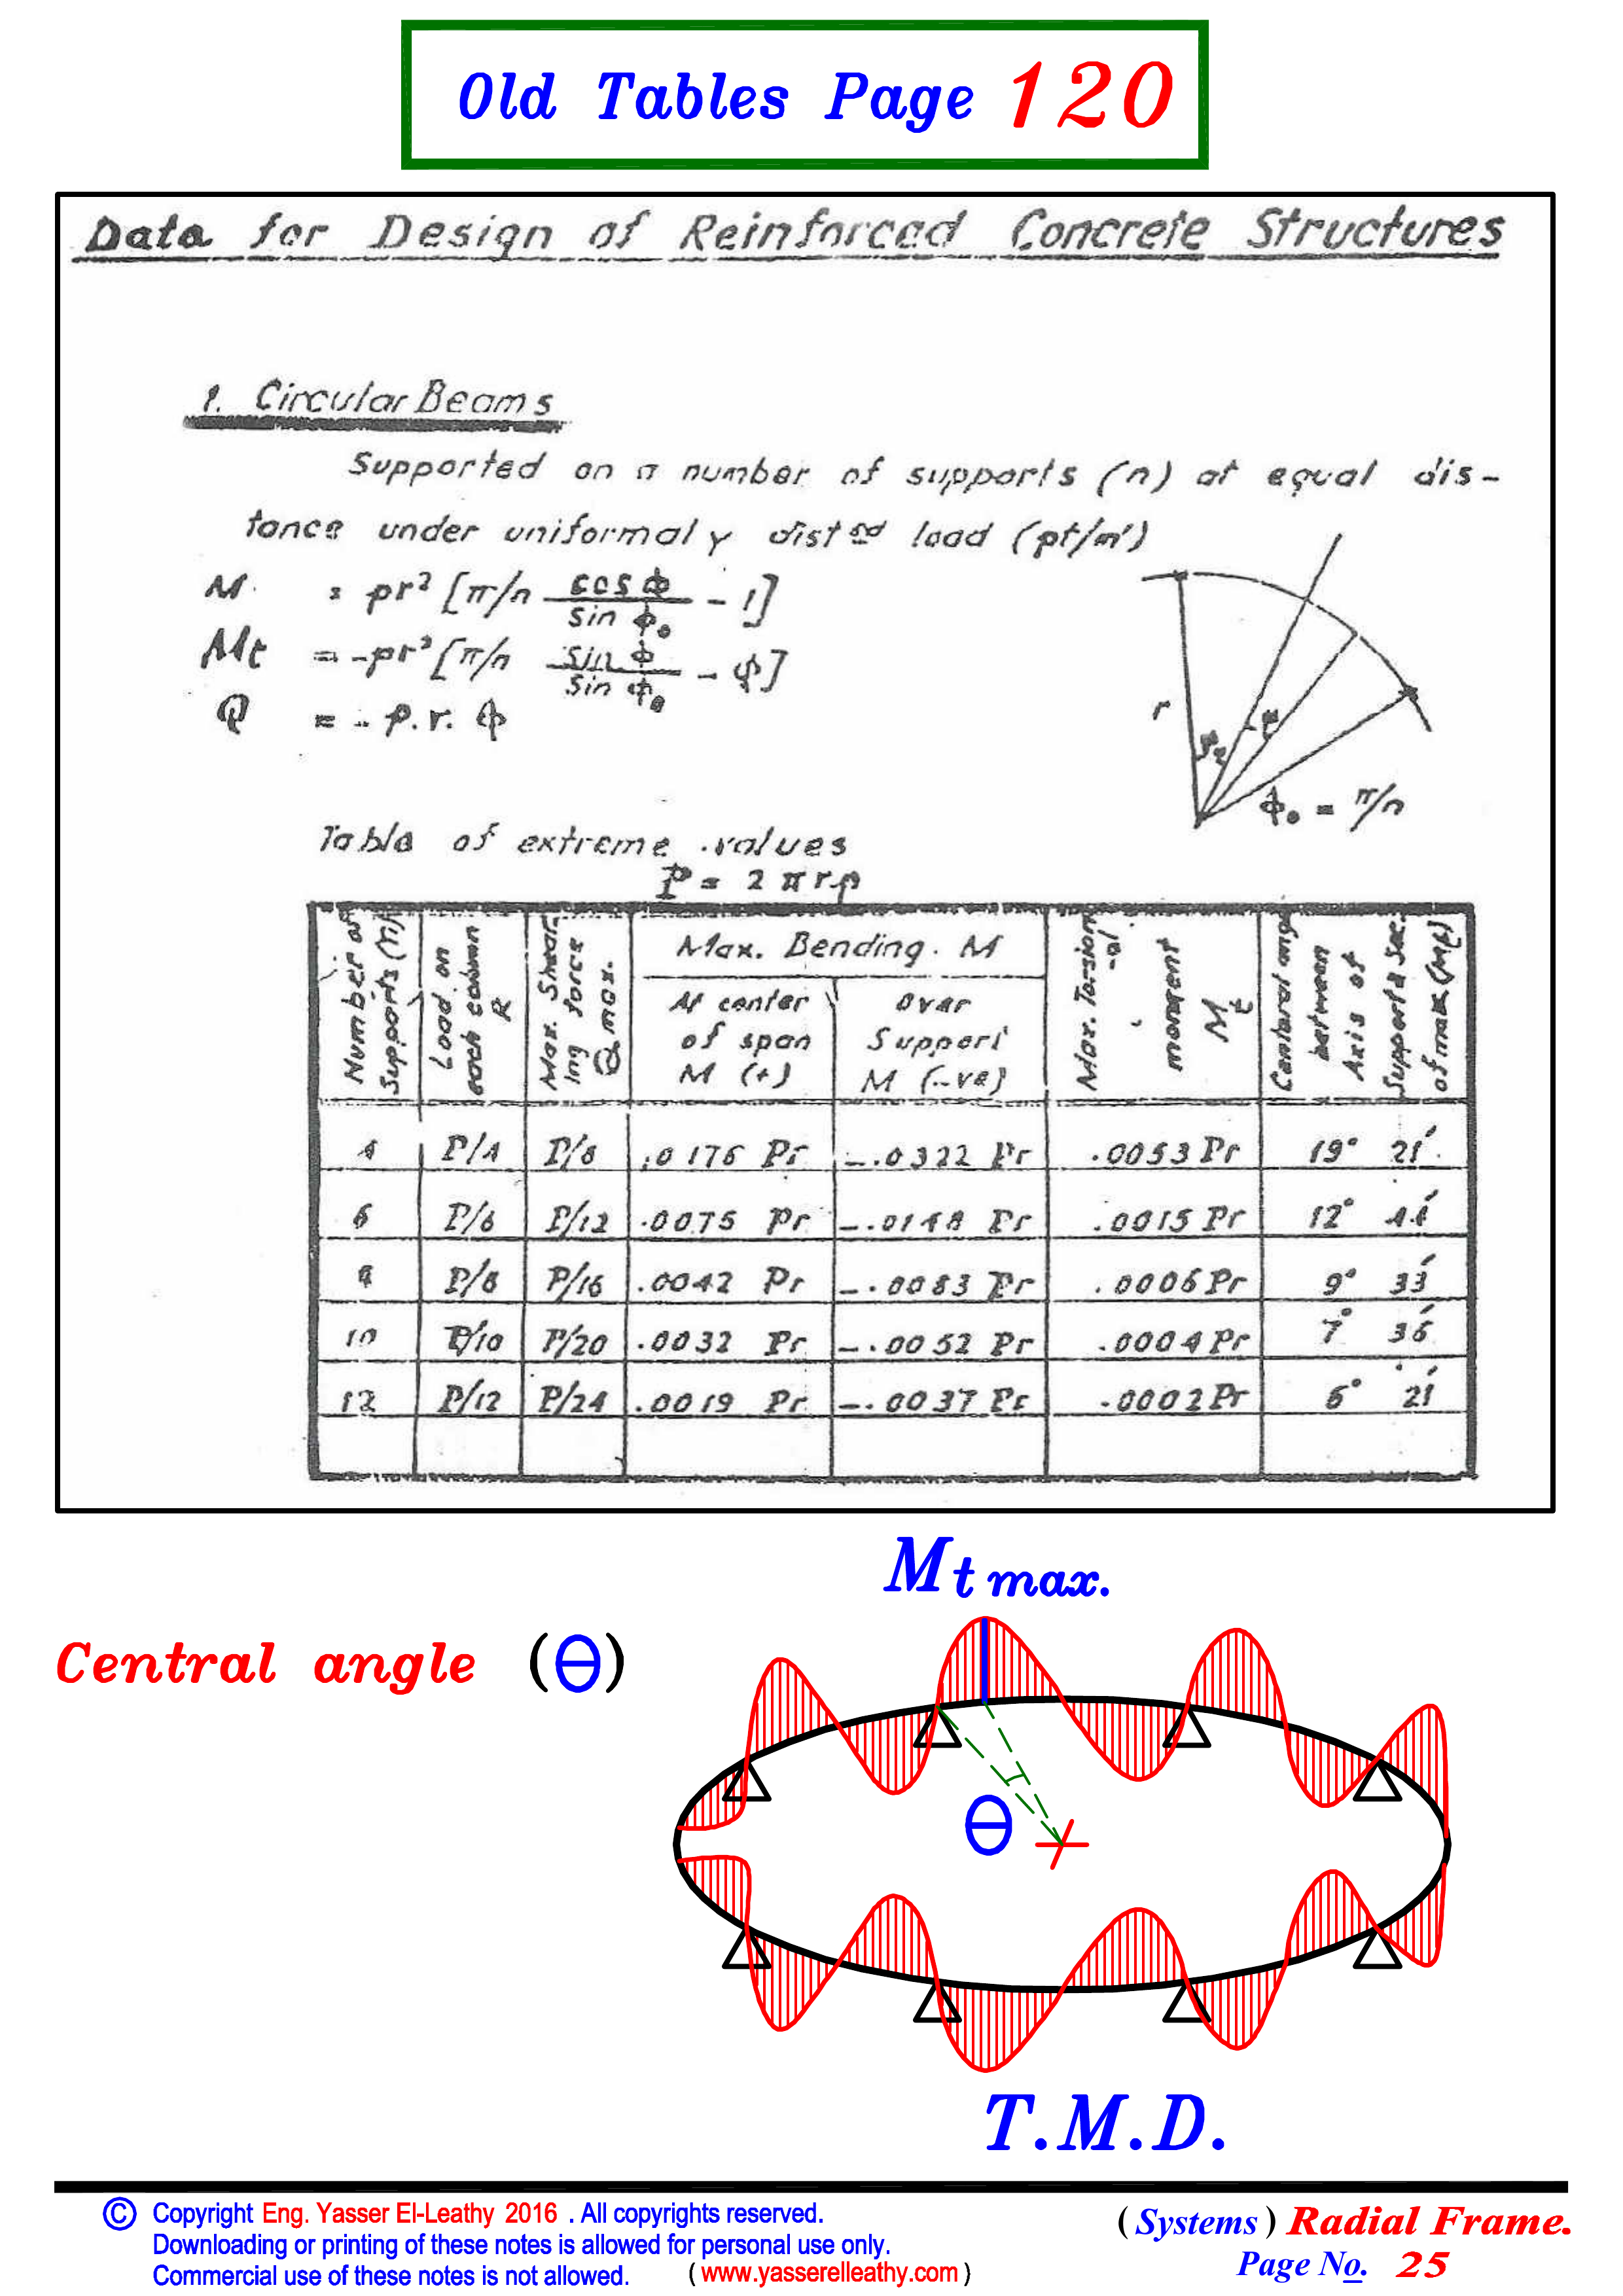 Old Tables Page 120
Data for Design of Reinforced Concrete Structures
1. Circular Beams
Supported on a number of supports (n) at equal dis-
tance under uniformaly dist ed load (pt/m')
M. = pr² [π/n cos ϕ / sin ϕ₀ - 1]
Mt = -pr² [π/n sin ϕ / sin ϕ₀ - ϕ]
Q = - p.r. ϕ
r
ϕ₀ = π/n
Table of extreme values
P = 2 π r p
Number of Supports (n)
Load on each column R
Max. Shearing force Q max.
Max. Bending. M
At center of span M (+)
Over Support M (-ve)
Max. Torsional moment Mt
Centeral angle between Axis of Supports & Sec. of max (Mt)
4 P/4 P/8 .0176 Pr -.0322 Pr .0053 Pr 19° 21'
6 P/6 P/12 .0075 Pr -.0148 Pr .0015 Pr 12° 44'
8 P/8 P/16 .0042 Pr -.0083 Pr .0006 Pr 9° 33'
10 P/10 P/20 .0032 Pr -.0052 Pr .0004 Pr 7° 36'
12 P/12 P/24 .0019 Pr -.0037 Pr .0002 Pr 6° 21'
Mt max.
Central angle (θ)
θ
T.M.D.
© Copyright Eng. Yasser El-Leathy 2016 . All copyrights reserved.
Downloading or printing of these notes is allowed for personal use only.
Commercial use of these notes is not allowed. ( www.yasserelleathy.com )
( Systems ) Radial Frame.
Page No. 25